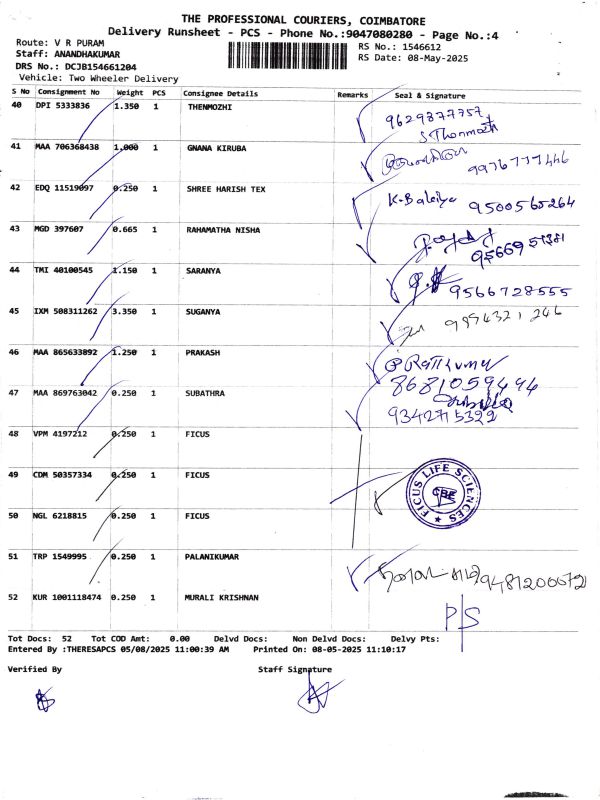 THE PROFESSIONAL COURIERS, COIMBATORE
Delivery Runsheet - PCS - Phone No.:9047080280 - Page No.:4
Route: V R PURAM
Staff: ANANDHAKUMAR
DRS No.: DCJB154661204
Vehicle: Two Wheeler Delivery
RS No.: 1546612
RS Date: 08-May-2025
S No Consignment No Weight PCS Consignee Details Remarks Seal & Signature
40 DPI 5333836 1.350 1 THENMOZHI 9629377757
41 MAA 706368438 1.000 1 GNANA KIRUBA 9976777446
42 EDQ 11519097 0.250 1 SHREE HARISH TEX 9500565264
43 MGD 397607 0.665 1 RAHAMATHA NISHA
44 TMI 40100545 1.150 1 SARANYA 9566728555
45 IXM 508311262 3.350 1 SUGANYA
46 MAA 865633892 1.250 1 PRAKASH 8681059494
47 MAA 869763042 0.250 1 SUBATHRA 9342715322
48 VPM 4197212 0.250 1 FICUS
49 CDM 50357334 0.250 1 FICUS FICUS LIFE SCIENCES CBE
50 NGL 6218815 0.250 1 FICUS
51 TRP 1549995 0.250 1 PALANIKUMAR
52 KUR 1001118474 0.250 1 MURALI KRISHNAN P/S
Tot Docs: 52 Tot COD Amt: 0.00 Delvd Docs: Non Delvd Docs: Delvy Pts:
Entered By :THERESAPCS 05/08/2025 11:00:39 AM Printed On: 08-05-2025 11:10:17
Verified By Staff Signature